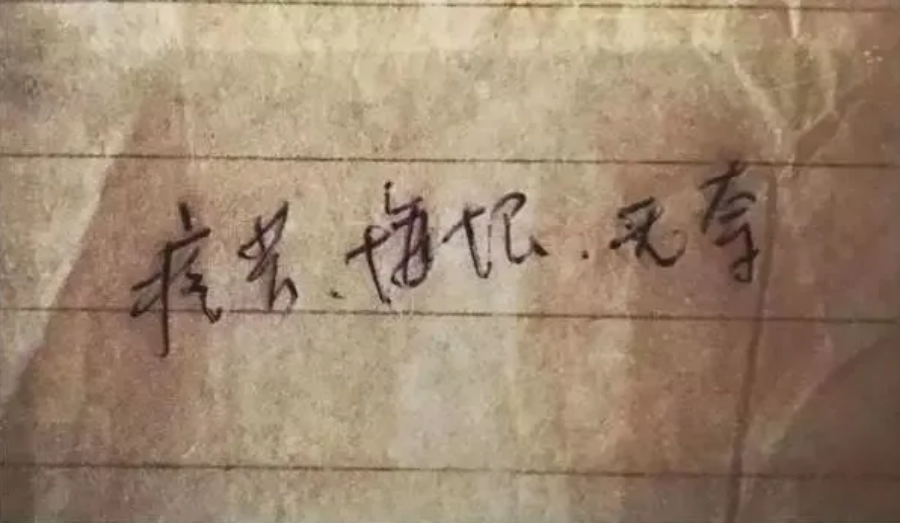 痛苦、悔恨、无奈